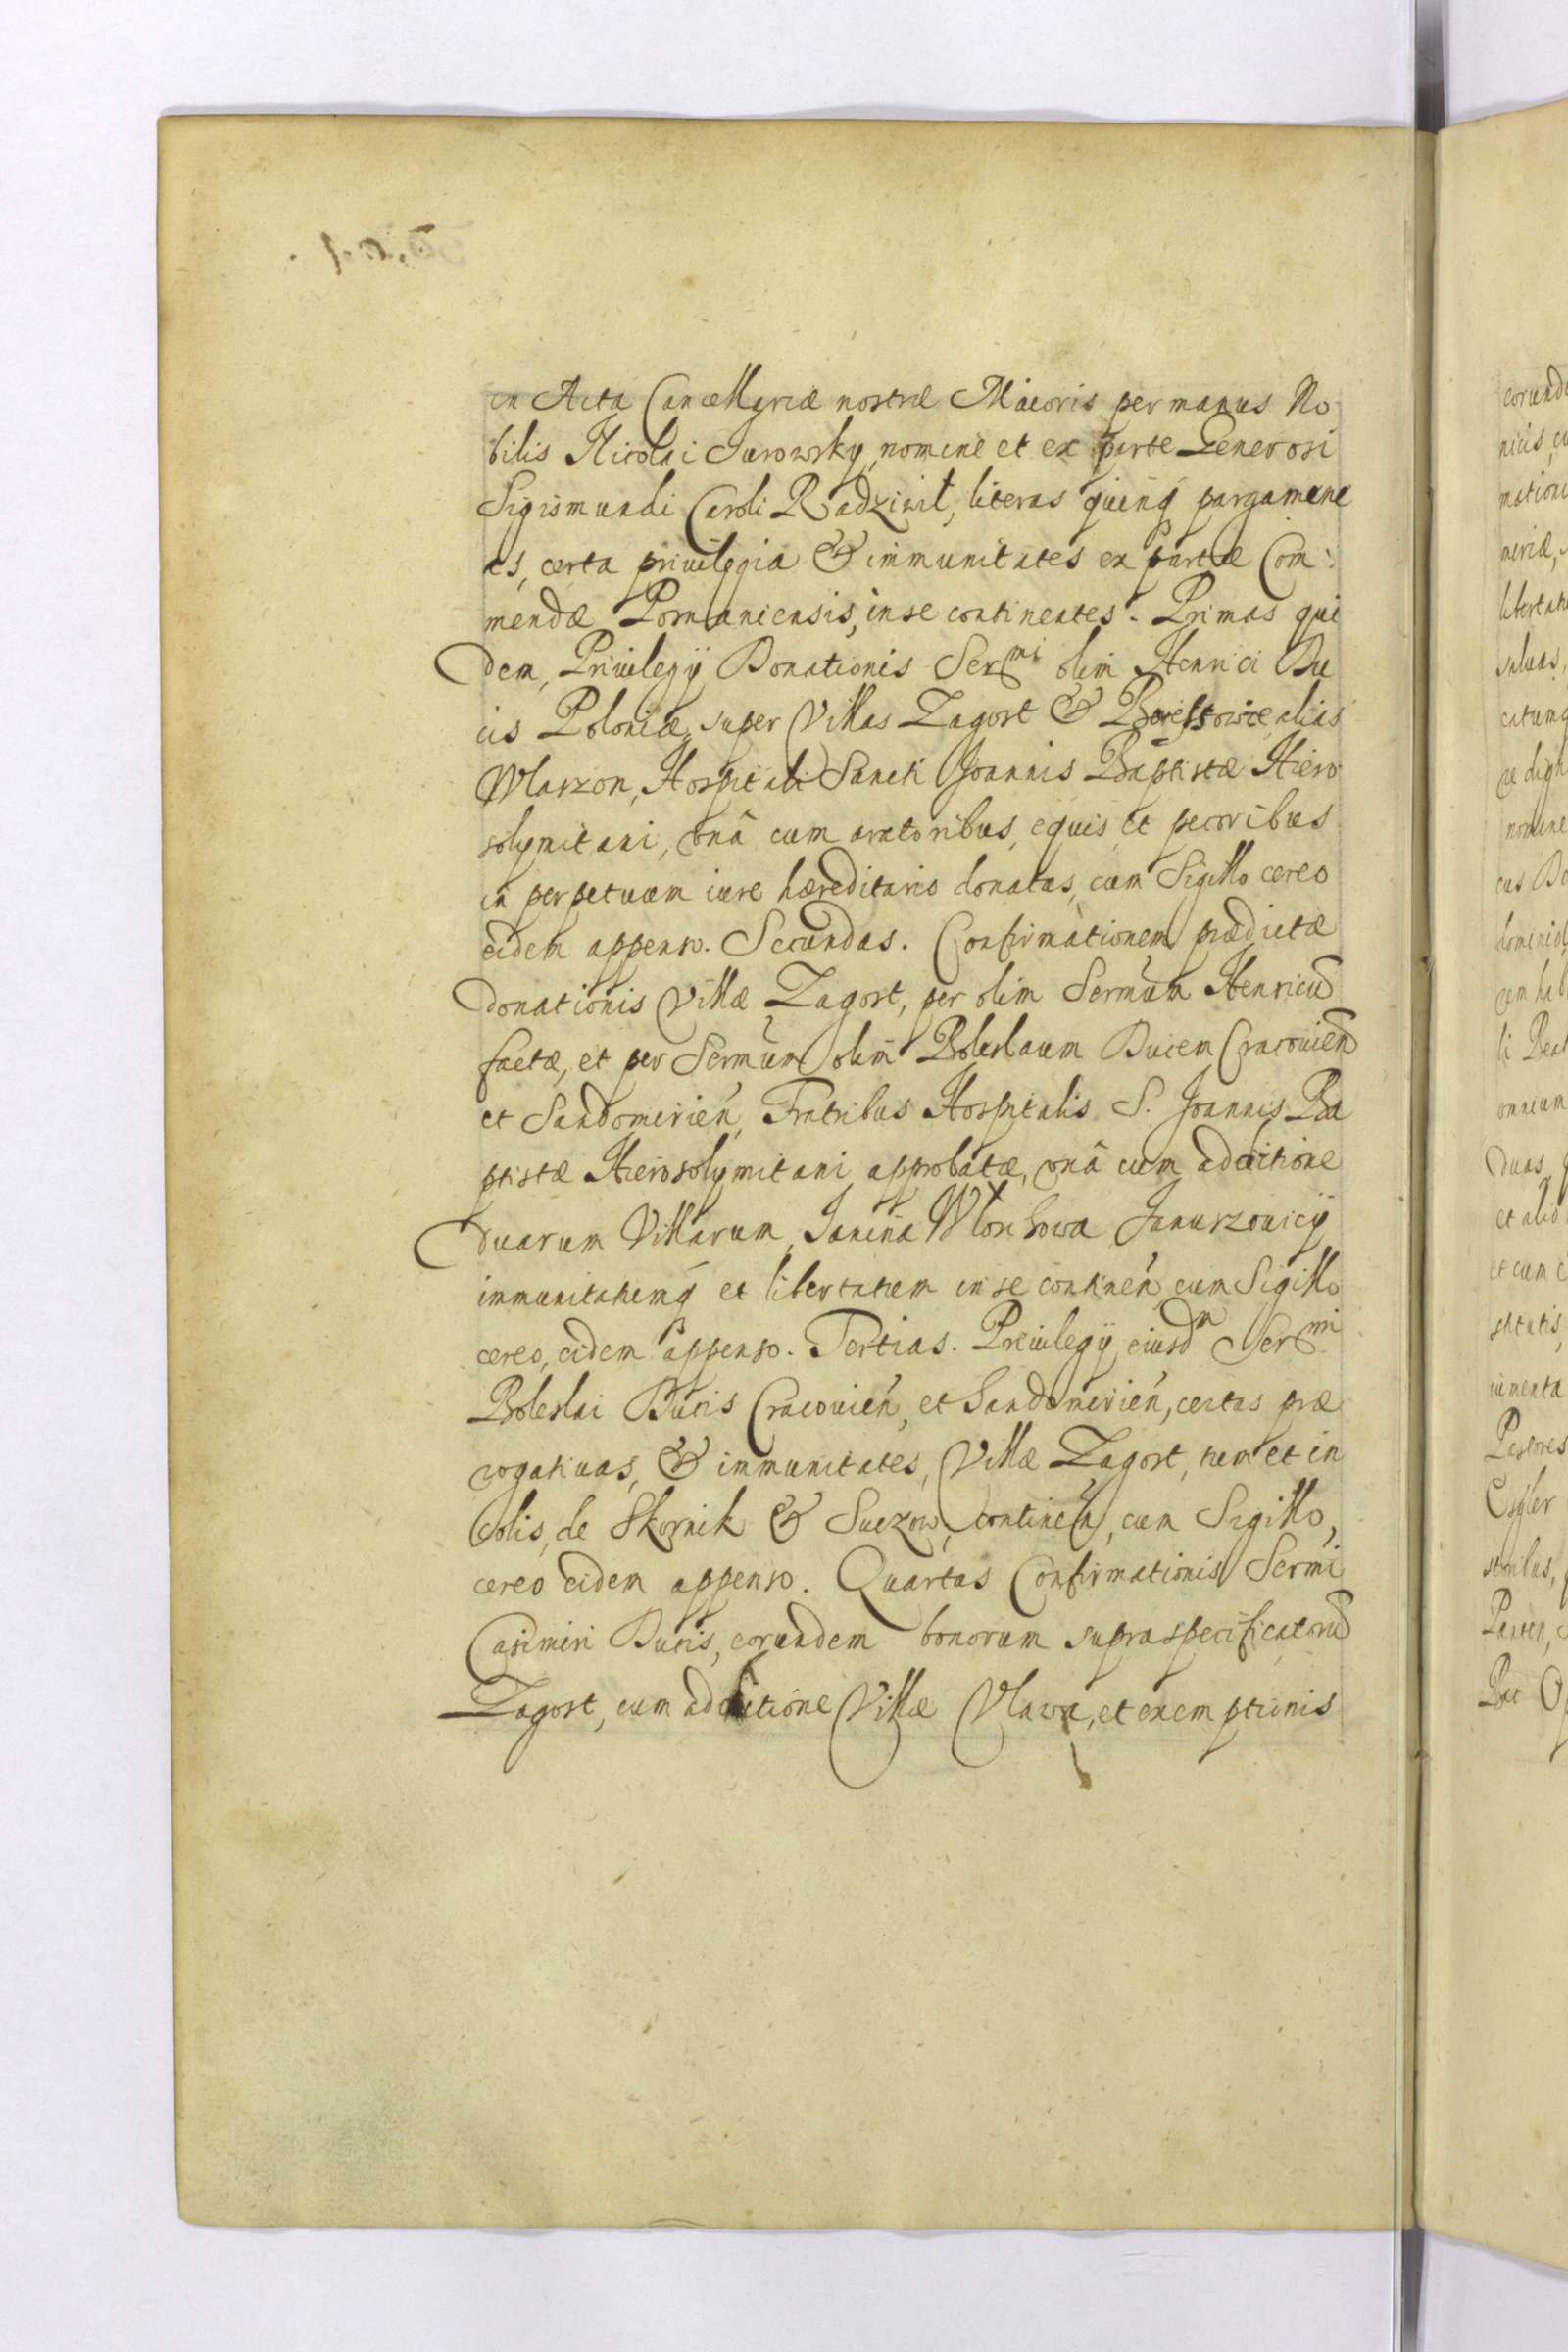 in Acta Cancellariæ nostræ Maioris per manus No
bilis Nicolai Jurowsky, nomine et ex parte Generosi
Sigismundi Caroli Radziwił, literas quinq́ pargamene
as, certa priuilegia & immunitates ex parte Com:
mendæ Posnaniensis, in se continentes. Primas qui
dem, Priuilegÿ Donationis Sermi olim Henrici Du
cis Poloniæ, super Villas Zagost & alias
Wlarzon, Hospitali Sancti Joannis Baptistæ Hiero
solymitani, vnâ cum aratoribus, equis et pecoribus
in perpetuum iure hæreditario donatas, cum Sigillo cereo
eidem appenso. Secundas. Confirmationem prædictæ
donationis Villæ Zagost, per olim Sermum Henricu
factæ, et per Sermum olim Boleslaum Ducem Cracouien
et Sandomirien, Fratribus Hospitalis S. Joannis Ba
ptistæ Hierosolymitani approbatæ, vnâ cum additione
duarum Villarum, Janina Januszouicÿ
immunitatemq́ et libertatem in se continen, cum Sigillo
cereo, eidem appenso. Tertias. Priuilegÿ eiusdm Sermi
Boleslai Ducis Cracouien, et Sandomirien, certas præ
rogatiuas, & immunitates, Villæ Zagost, tum et in
colis, de Skornik & Suczow, continen, cum Sigillo,
cereo eidem appenso. Quartas Confirmationis Sermi
Casimiri Ducis, eorundem bonorum supraspecificatoru
Zagost, cum additione Villæ Vlawa, et exemptionis